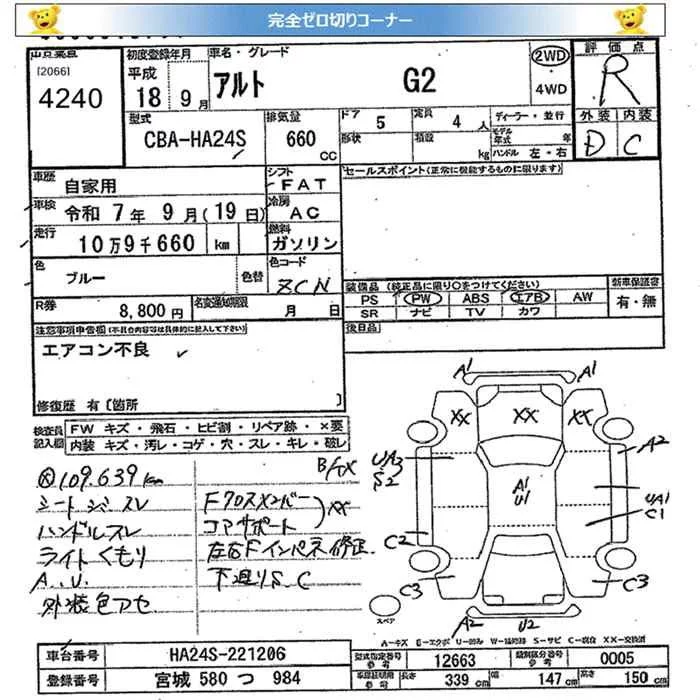 完全ゼロ切りコーナー
出品番号 初度登録年月 車名・グレード 2WD 評価点
[2066] 平成 アルト G2 4WD R
4240 18年 9月
型式 排気量 ドア 5 定員 4人 ディーラー・並行 外装 内装
CBA-HA24S 660 CC 形状 積載 kg モデル年式 年 ハンドル 左・右 D C
車歴 自家用 シフト FAT セールスポイント(正常に機能するものに限ります)
車検 令和 7年 9月(19日) 冷房 AC
走行 10万9千660 km 燃料 ガソリン
色 ブルー 色替 色コード ZCN
装備品(純正品に限り○をつけてください) 新車保証書
PS PW ABS エアB AW 有・無
SR ナビ TV カワ
R券 8,800円 名変通知期限 月 日
後日品
注意事項申告欄(不具合内容等は具体的に記入して下さい)
エアコン不良
修復歴 有〔箇所 〕
検査員記入欄 FW キズ・飛石・ヒビ割・リペア跡・×要
内装 キズ・汚レ・コゲ・穴・スレ・キレ・破レ
109.639km
シート スレ
ハンドルスレ
ライトくもり
A.U.
外装色アセ
Fクロスメンバー
コアサポート XX
左右Fインパネ修正
下廻りS.C
A1 A1
XX XX XX
UA3 S2 A2
A1 U1
UA1 C1
C2
C3 C3
スペア
A2 U2
A-キズ E-エクボ U-凹み W-補修跡 S-サビ C-腐食 XX-交換済
車台番号 HA24S-221206 型式指定番号 参考 12663 類別区分番号 参考 0005
登録番号 宮城 580 つ 984 車検証記載 参考 長さ 339 cm 幅 147 cm 高さ 150 cm